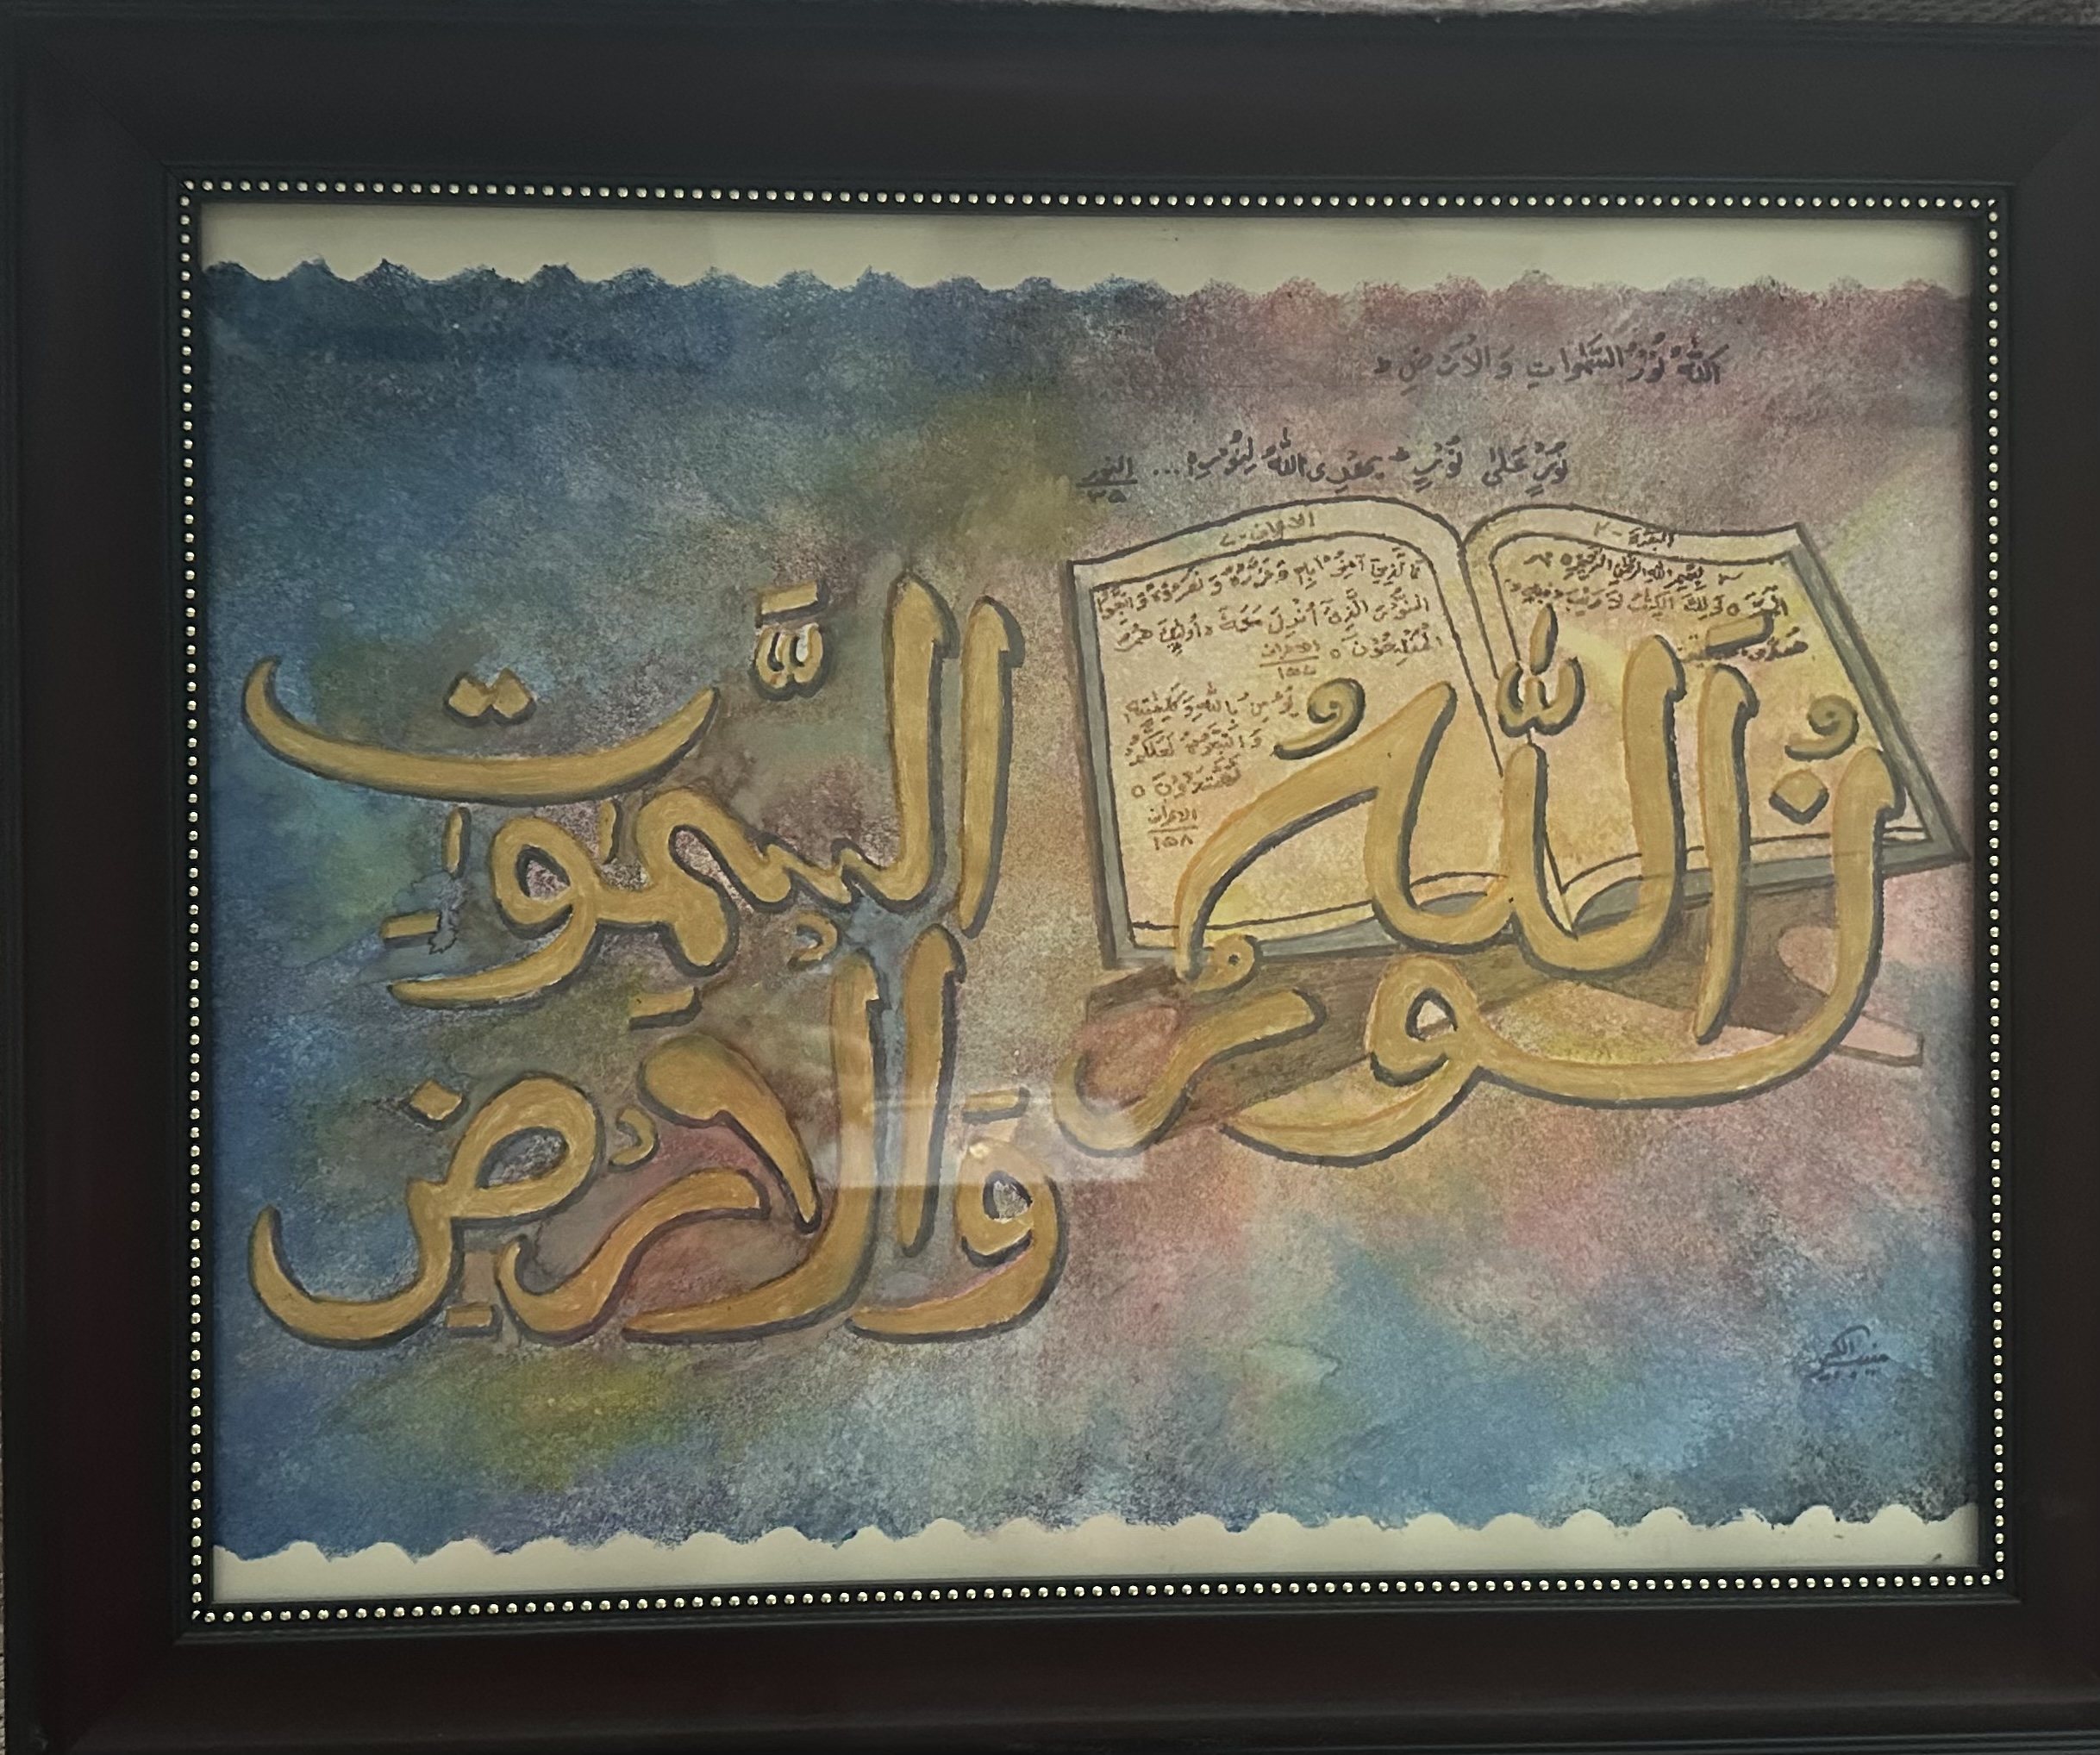 اَللّٰهُ نُوْرُ السَّمٰوَاتِ وَالْاَرْضِ ط
نُوْرٌ عَلٰى نُوْرٍ ط يَهْدِى اللّٰهُ لِنُوْرِهٖ ... النور ٣٥
البقرة - ٢
بِسْمِ اللّٰهِ الرَّحْمٰنِ الرَّحِيْمِ
الٓمّٓ ٥ ذٰلِكَ الْكِتٰبُ لَا رَيْبَ
الاعراف - ٧
فَالَّذِيْنَ اٰمَنُوْا بِهٖ وَعَزَّرُوْهُ وَنَصَرُوْهُ وَاتَّبَعُوا
النُّوْرَ الَّذِىْٓ اُنْزِلَ مَعَهٗ اُولٰٓئِكَ هُمُ
الْمُفْلِحُوْنَ ٥ الاعراف ١٥٧
بِاللّٰهِ وَكَلِمٰتِهٖ
وَاتَّبِعُوْهُ لَعَلَّكُمْ
تَهْتَدُوْنَ ٥
الاعراف
١٥٨
اَللّٰهُ
نُوْرُ
السَّمٰوٰتِ
وَالْاَرْضِ